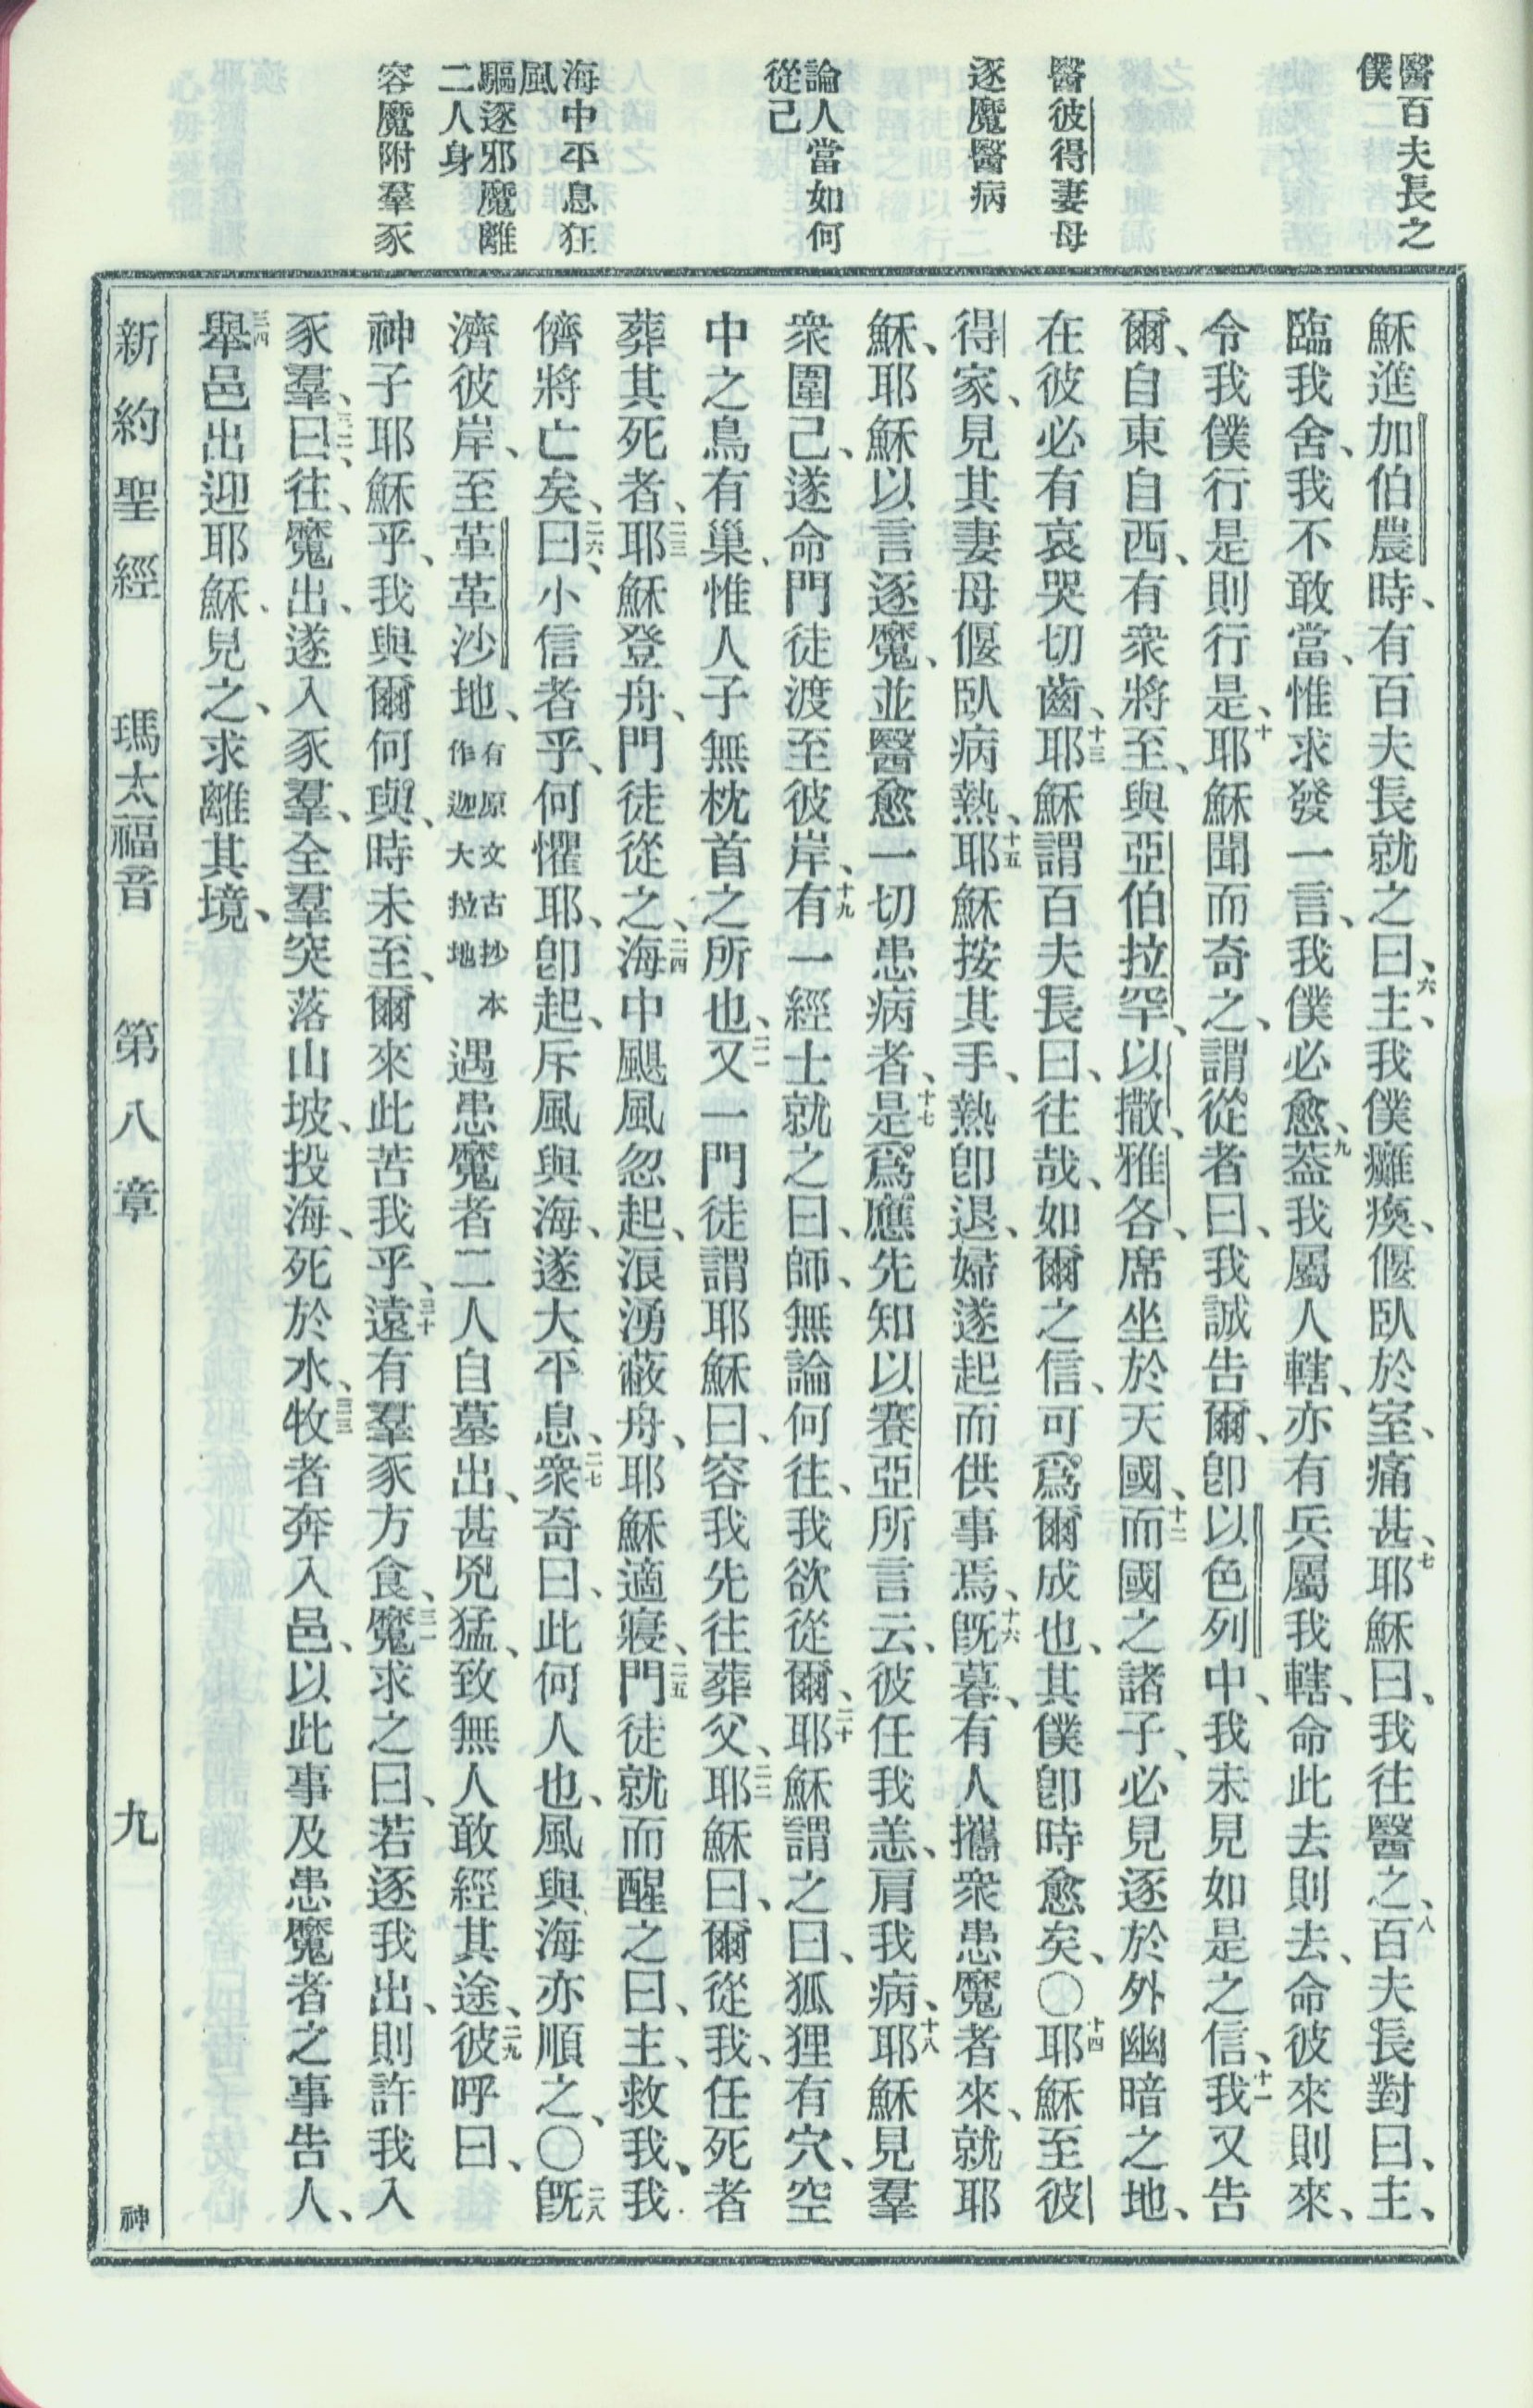 醫百夫長之
僕
醫彼得妻母
逐魔醫病
論人當如何
從己
海中平息狂
風
驅逐邪魔離
二人身
容魔附羣豕
穌進加伯農時、有百夫長就之曰、六主、我僕癱瘓、偃臥於室、痛甚、七耶穌曰、我往醫之、八百夫長對曰、主、
臨我舍、我不敢當、惟求發一言、我僕必愈、九蓋我屬人轄、亦有兵屬我轄、命此去則去、命彼來則來、
令我僕行是則行是、十耶穌聞而奇之、謂從者曰、我誠告爾、卽以色列中、我未見如是之信、十一我又告
爾、自東自西、有衆將至、與亞伯拉罕、以撒、雅各、席坐於天國、十二而國之諸子、必見逐於外幽暗之地、
在彼必有哀哭切齒、十三耶穌謂百夫長曰、往哉、如爾之信、可爲爾成也、其僕卽時愈矣、〇十四耶穌至彼
得家、見其妻母偃臥病熱、十五耶穌按其手、熱卽退、婦遂起而供事焉、十六旣暮、有人攜衆患魔者來、就耶
穌、耶穌以言逐魔、並醫愈一切患病者、十七是爲應先知以賽亞所言云、彼任我恙、肩我病、十八耶穌見羣
衆圍己、遂命門徒渡至彼岸、十九有一經士就之曰、師、無論何往、我欲從爾、二十耶穌謂之曰、狐狸有穴、空
中之鳥有巢、惟人子無枕首之所也、二一又一門徒謂耶穌曰、容我先往葬父、二二耶穌曰、爾從我、任死者
葬其死者、二三耶穌登舟、門徒從之、二四海中颶風忽起、浪湧蔽舟、耶穌適寢、二五門徒就而醒之曰、主、救我、我
儕將亡矣、二六曰、小信者乎、何懼耶、卽起、斥風與海、遂大平息、二七衆奇曰、此何人也、風與海亦順之、〇二八旣
濟彼岸、至革革沙地、有原文古抄本作迦大拉地遇患魔者二人自墓出、甚兇猛、致無人敢經其途、二九彼呼曰、
神子耶穌乎、我與爾何與、時未至、爾來此苦我乎、三十遠有羣豕方食、三一魔求之曰、若逐我出、則許我入
豕羣、三二曰、往、魔出、遂入豕羣、全羣突落山坡、投海、死於水、三三牧者奔入邑、以此事及患魔者之事告人、
三四舉邑出迎耶穌、見之、求離其境、
新約聖經 瑪太福音 第八章 九 神